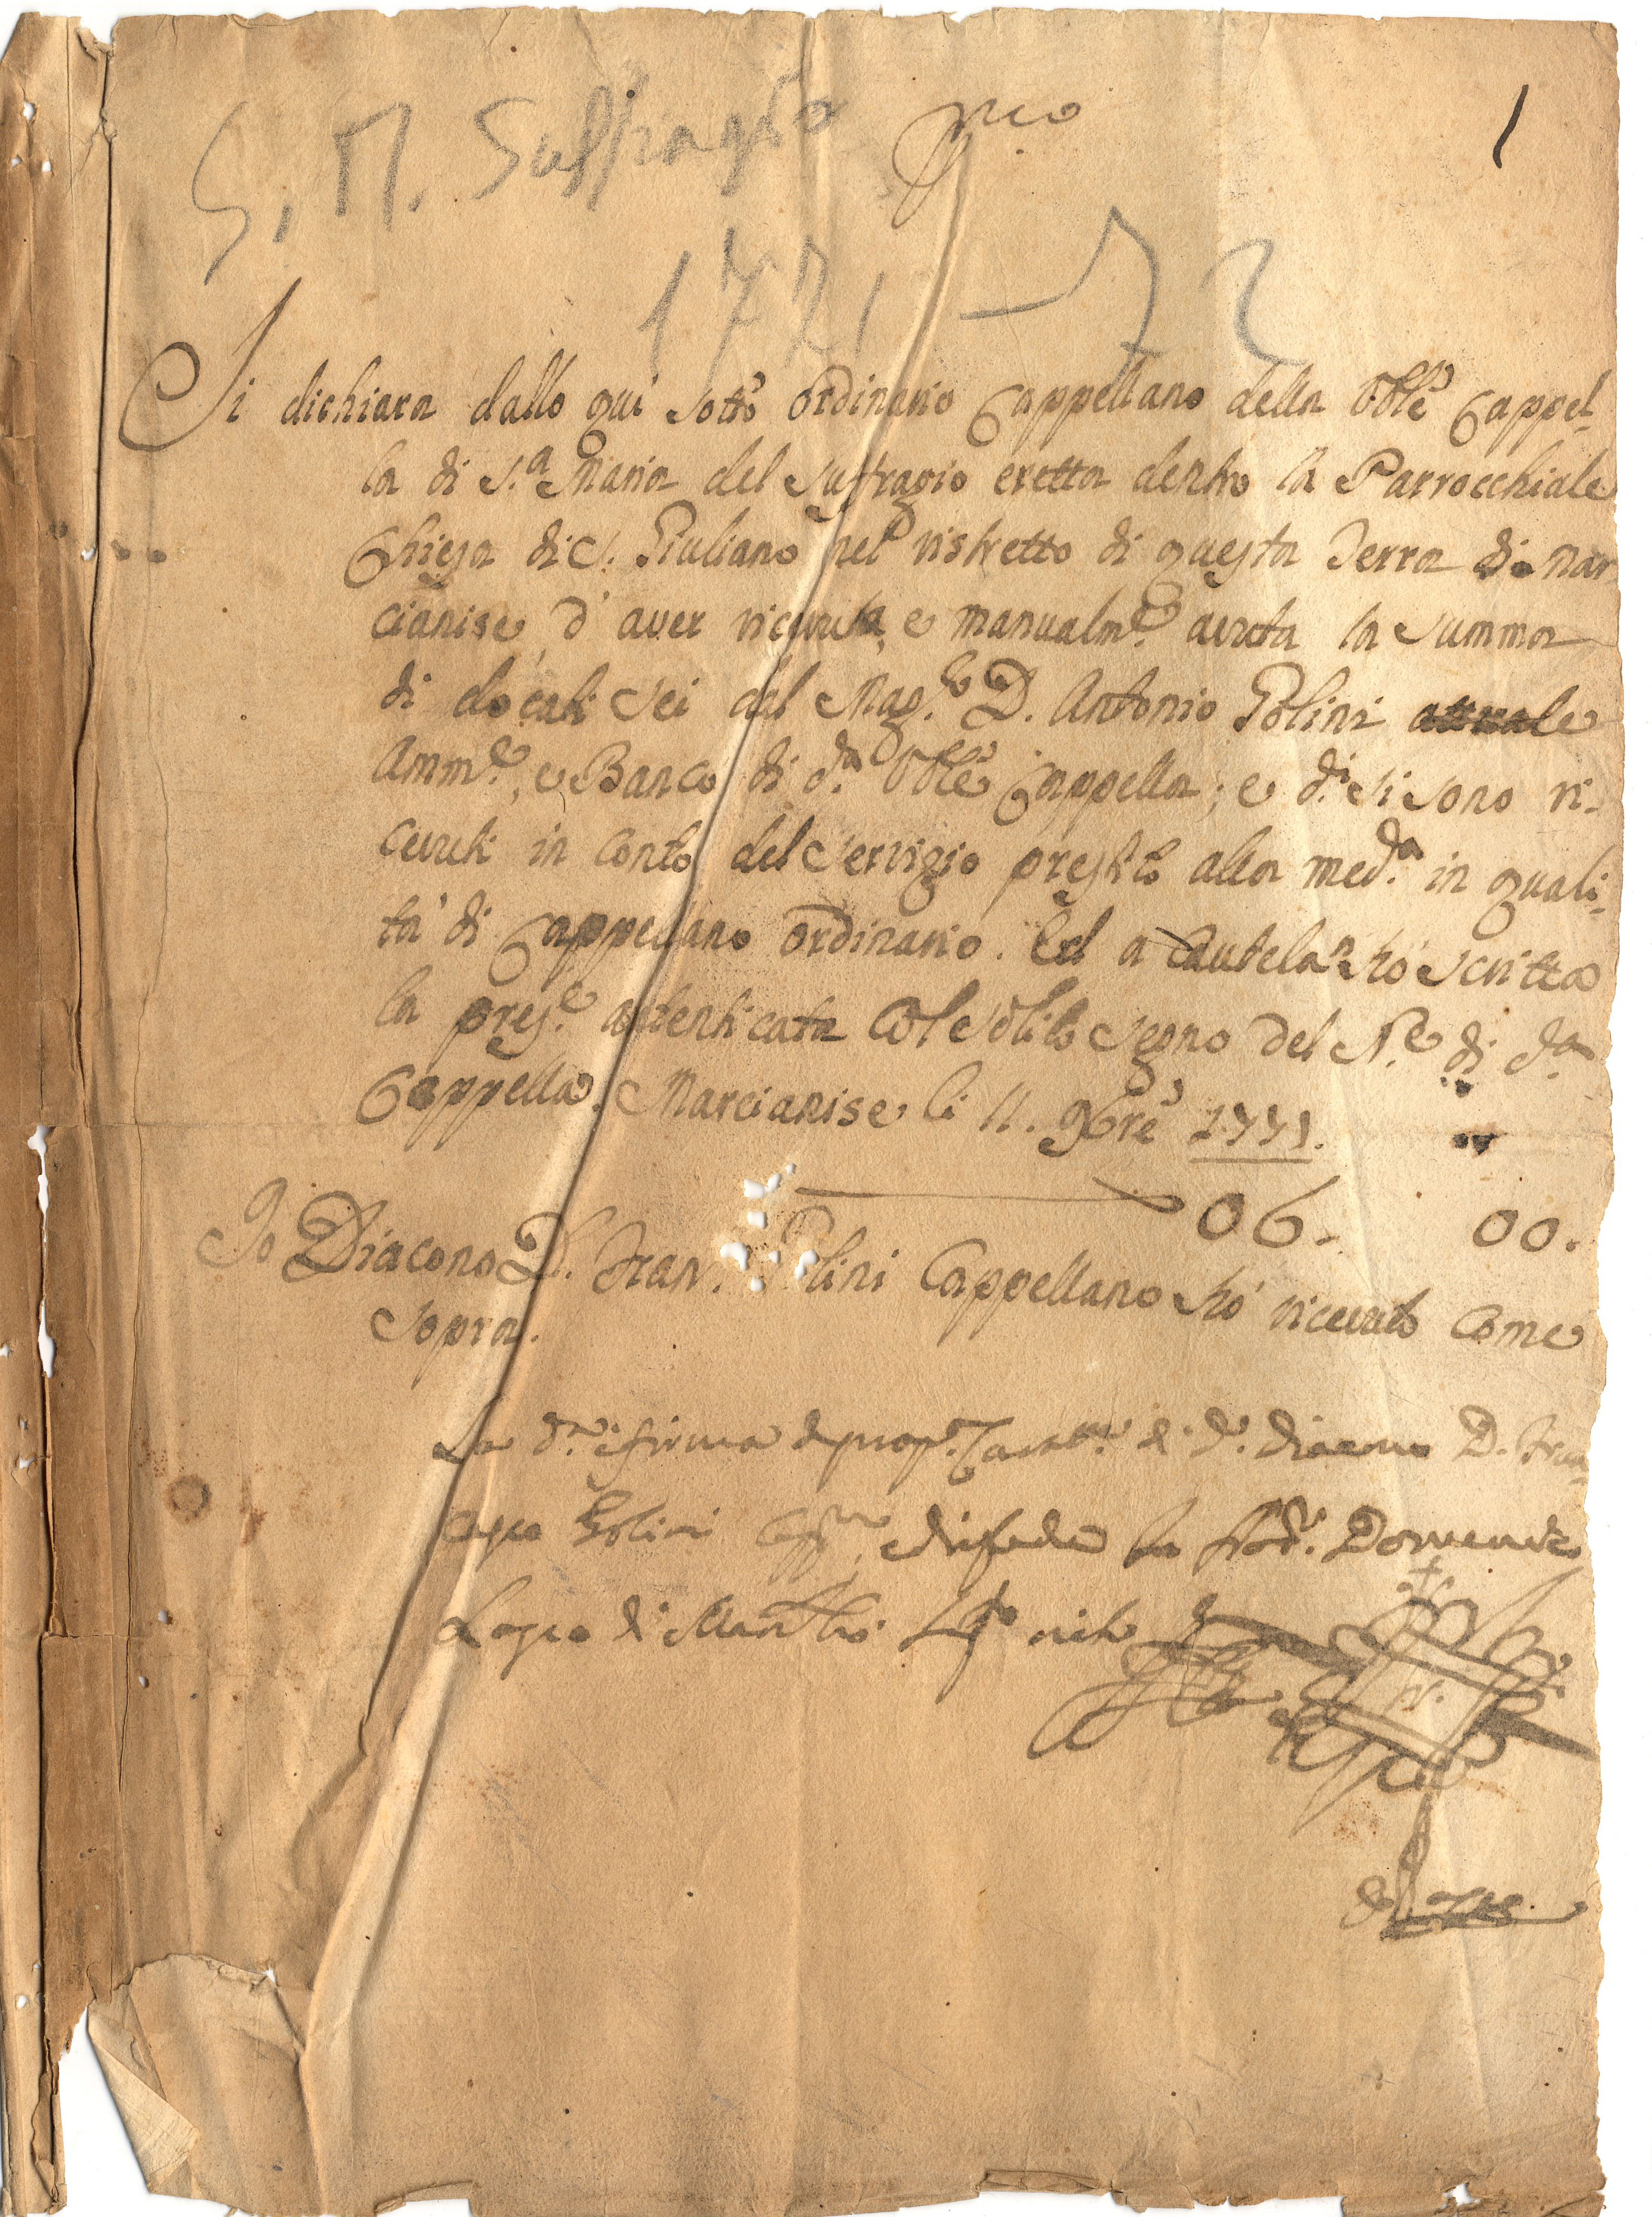 S. M. Suffragio
1
1771-72
Si dichiara dallo quì sotto ordinario Cappellano della Vble Cappel-
la di S.a Maria del Sufragio eretta dentro la Parrocchiale
Chiesa di S. Giuliano nel ristretto di questa Terra di Mar
cianise, d'aver ricevuta, e manualm.e avuta la summa
di docati sei dal Mag.co D. Antonio Golini attuale
Amm.re, e Banco di d.a Vble Cappella; e d.i si sono ri-
cevuti in conto del servizio prestato alla med.a in quali-
tà di Cappellano ordinario. Ed a cautela ne hò scritta
la pres.e autenticata col solito segno del N.e di d.a
Cappella. Marcianise li 11. 9bre 1771.
06. 00.
Io Diacono D. Fran. lini Cappellano hò ricevuto come
sopra.
La d.a firma di prop. d. d. diacono D. Fran
cesco Golini, ed in fede Domenico
di